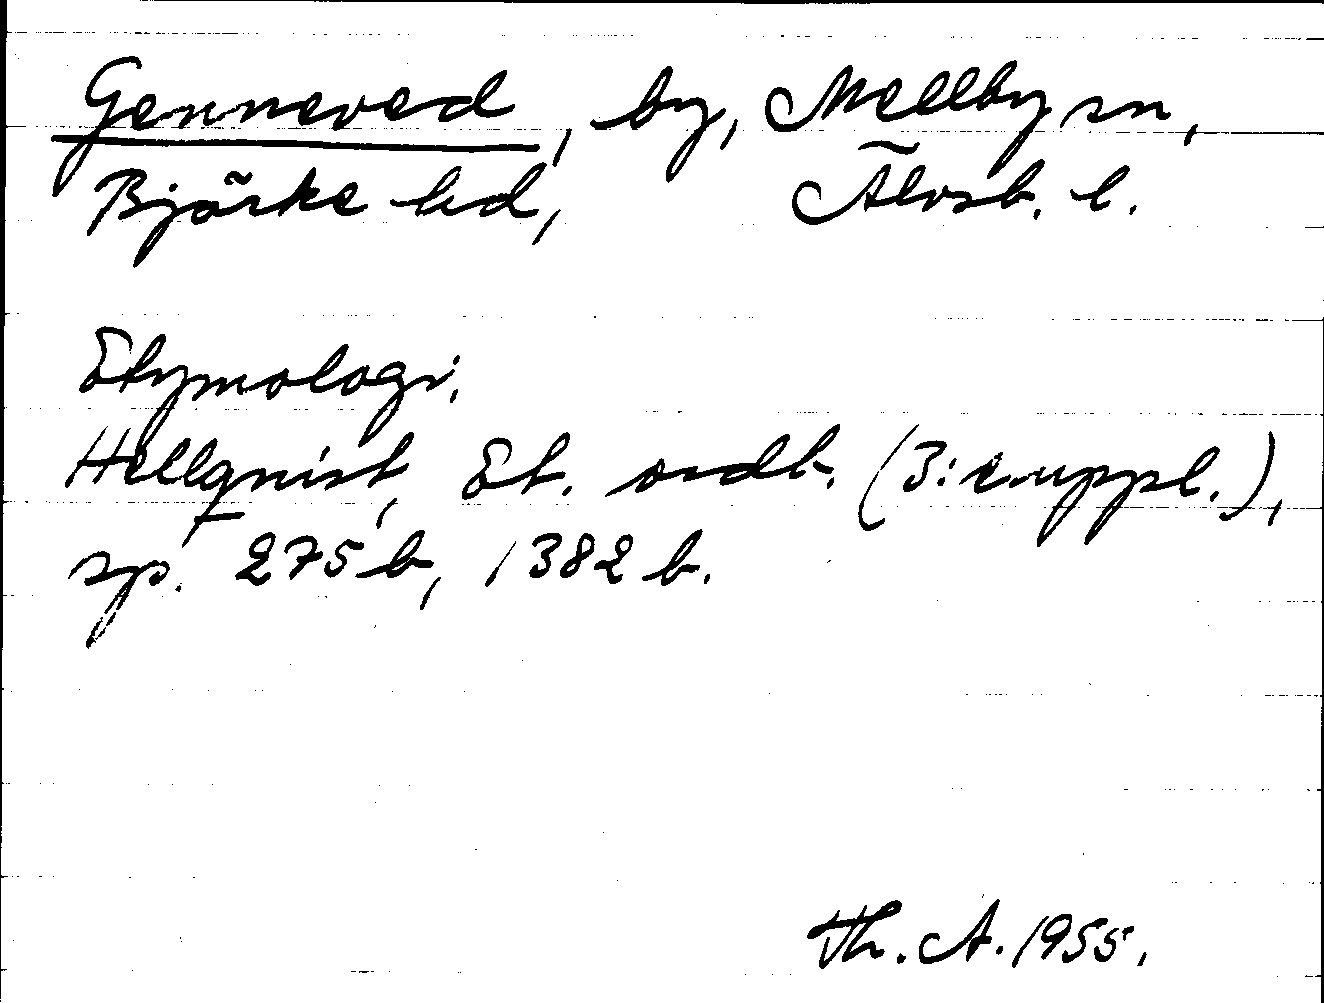 Genneved, by, Mellby sn,
Bjärke hd, Älvsb. l.
Etymologi.
Hellquist, Et. ordb. (3:e uppl.),
sp. 275 b, 1382 b.
Th. A. 1955.